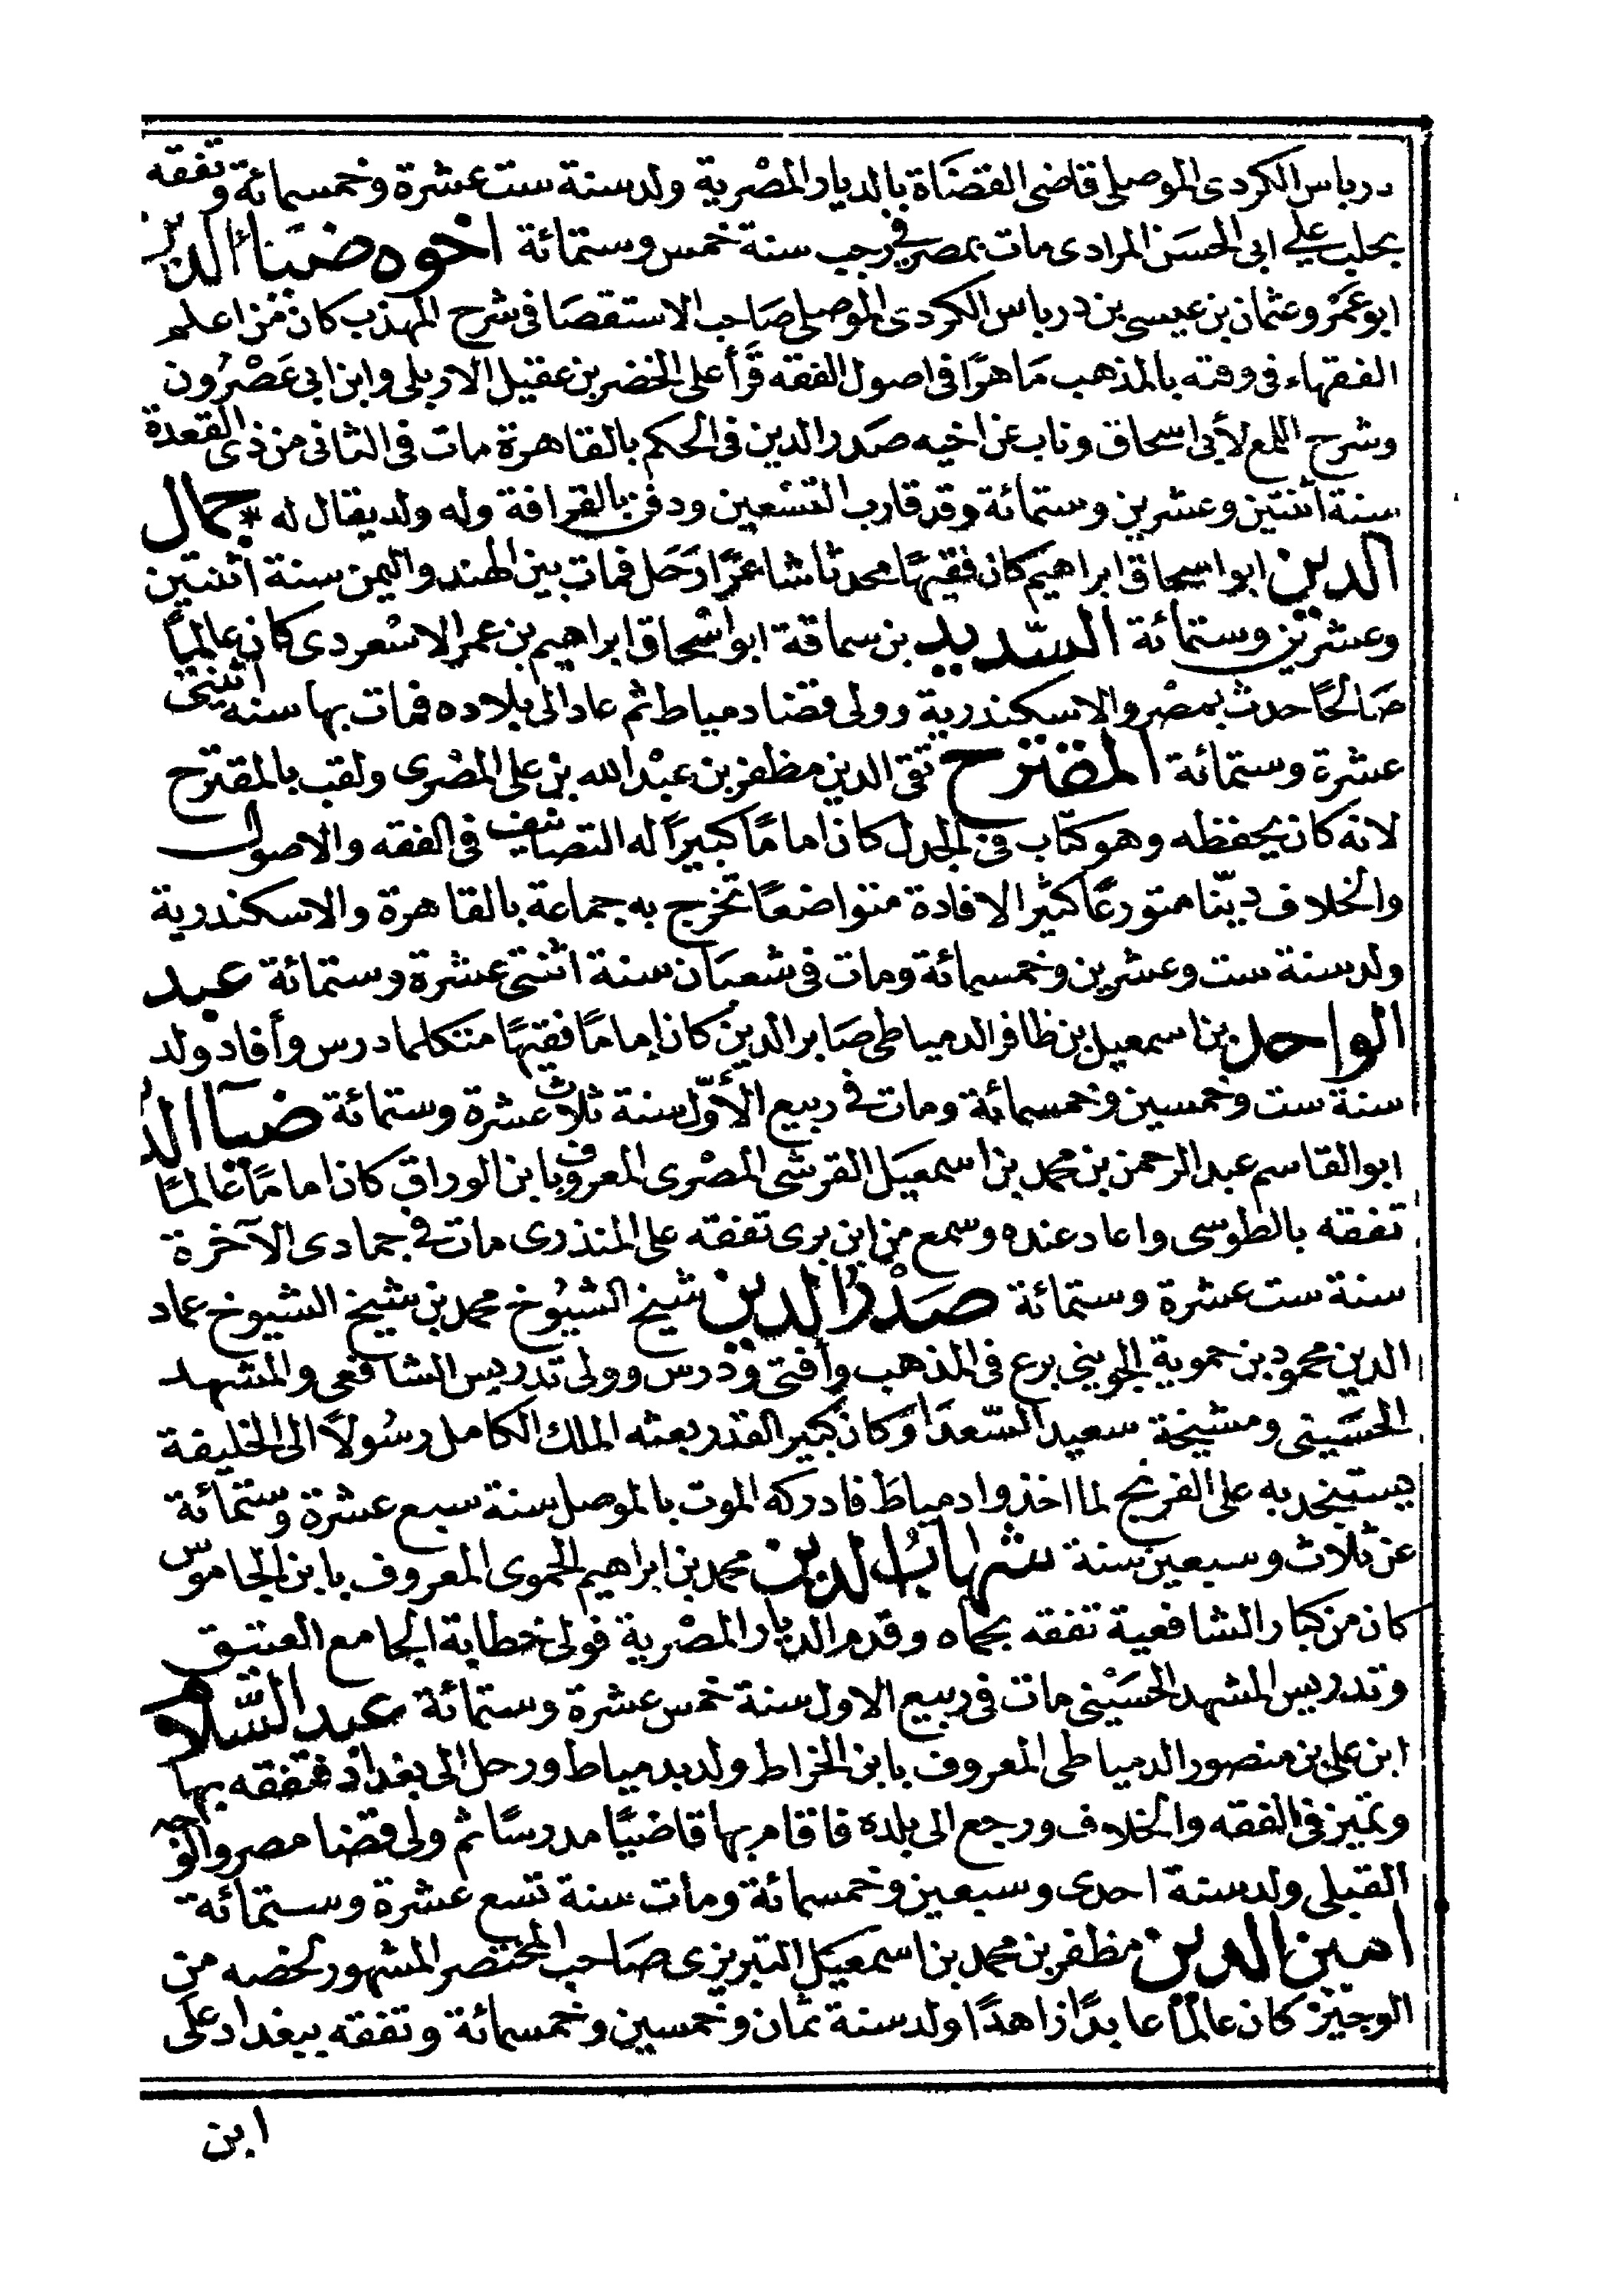 درباس الكردى الموصلى قاضى القضاة بالديار المصرية ولد سنة ست عشرة وخمسمائة وتفقه
بحلب على ابى الحسن المرادى مات بمصر فى رجب سنة خمس وستمائة اخوه ضياء الدين
ابو عمرو عثمان بن عيسى بن درباس الكردى الموصلى صاحب الاستقصا فى شرح المهذب كان من اعلم
الفقهاء فى وقته بالمذهب ماهرا فى اصول الفقه قرأ على الخضر بن عقيل الاربلى وابن ابى عصرون
وشرح اللمع لأبى اسحاق وناب عن اخيه صدر الدين فى الحكم بالقاهرة مات فى الثانى من ذى القعدة
سنة اثنتين وعشرين وستمائة وقد قارب التسعين ودفن بالقرافة وله ولد يقال له * جمال
الدين ابو اسحاق ابراهيم كان فقيها محدثا شاعرا رحل فمات بين الهند واليمن سنة اثنتين
وعشرين وستمائة السديد بن سماقة ابو اسحاق ابراهيم بن عمر الاسعردى كان عالما
صالحا حدث بمصر والاسكندرية وولى قضا دمياط ثم عاد الى بلاده فمات بها سنه اثنتى
عشرة وستمائة المقترح تقى الدين مظفر بن عبد الله بن على المصرى ولقب بالمقترح
لانه كان يحفظه وهو كتاب فى الجدل كان اماما كبيرا له التصانيف فى الفقه والاصول
والخلاف دينا متورعا كثير الافادة متواضعا تخرج به جماعة بالقاهرة والاسكندرية
ولد سنة ست وعشرين وخمسمائة ومات فى شعبان سنة اثنتى عشرة وستمائة عبد
الواحد بن اسمعيل بن ظافر الدمياطى صابر الدين كان إماما فقيها متكلما درس وأفاد ولد
سنة ست وخمسين وخمسمائة ومات فى ربيع الأوّل سنة ثلاث عشرة وستمائة ضيآ الدين
ابو القاسم عبد الرحمن بن محمد بن اسمعيل القرشى المصرى المعروف بابن الوراق كان اماما عالما
تفقه بالطوسى واعاد عنده وسمع من ابن برى تفقه على المنذرى مات فى جمادى الآخرة
سنة ست عشرة وستمائة صدر الدين شيخ الشيوخ محمد بن شيخ الشيوخ عماد
الدين محمود بن حموية الجوينى برع فى المذهب وأفتى ودرس وولى تدريس الشافعى والمشهد
الحسينى ومشيخة سعيد السعدا وكان كبير القدر بعثه الملك الكامل رسولا الى الخليفة
يستنجد به على الفرنج لما اخذوا دمياط فادركه الموت بالموصل سنة سبع عشرة وستمائة
عن ثلاث وسبعين سنة شهاب الدين محمد بن ابراهيم الحموى المعروف بابن الجاموس
كان من كبار الشافعية تفقه بحماه وقدم الديار المصرية فولى خطابة الجامع العتيق
وتدريس المشهد الحسينى مات فى ربيع الاول سنة خمس عشرة وستمائة عبد السّلام
ابن على بن منصور الدمياطى المعروف بابن الخراط ولد بدمياط ورحل الى بغداد فتفقه بها
وتميز فى الفقه والخلاف ورجع الى بلده فاقام بها قاضيا مدرسا ثم ولى قضا مصر والوجه
القبلى ولد سنة احدى وسبعين وخمسمائة ومات سنة تسع عشرة وستمائة
امين الدين مظفر بن محمد بن اسمعيل التبريزى صاحب المختصر المشهور لخصه من
الوجيز كان عالما عابدا زاهدا ولد سنة ثمان وخمسين وخمسمائة وتفقه ببغداد على
ابن